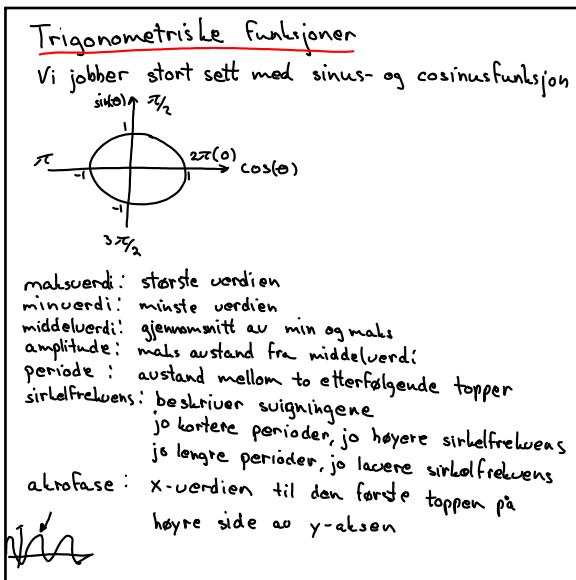 Trigonometriske funksjoner
Vi jobber stort sett med sinus- og cosinusfunksjon
sin(θ) π/2
1
π -1 2π(0) 1 cos(θ)
-1
3π/2
maksverdi: største verdien
minverdi: minste verdien
middelverdi: gjennomsnitt av min og maks
amplitude: maks avstand fra middelverdi
periode: avstand mellom to etterfølgende topper
sirkelfrekvens: beskriver svigningene
jo kortere perioder, jo høyere sirkelfrekvens
jo lengre perioder, jo lavere sirkelfrekvens
akrofase: x-verdien til den første toppen på
høyre side av y-aksen